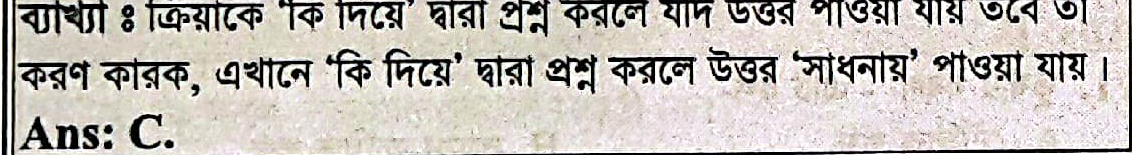 ব্যাখ্যা ঃ ক্রিয়াকে 'কি দিয়ে' দ্বারা প্রশ্ন করলে যদি উত্তর পাওয়া যায় তবে তা
করণ কারক, এখানে 'কি দিয়ে' দ্বারা প্রশ্ন করলে উত্তর 'সাধনায়' পাওয়া যায়।
Ans: C.